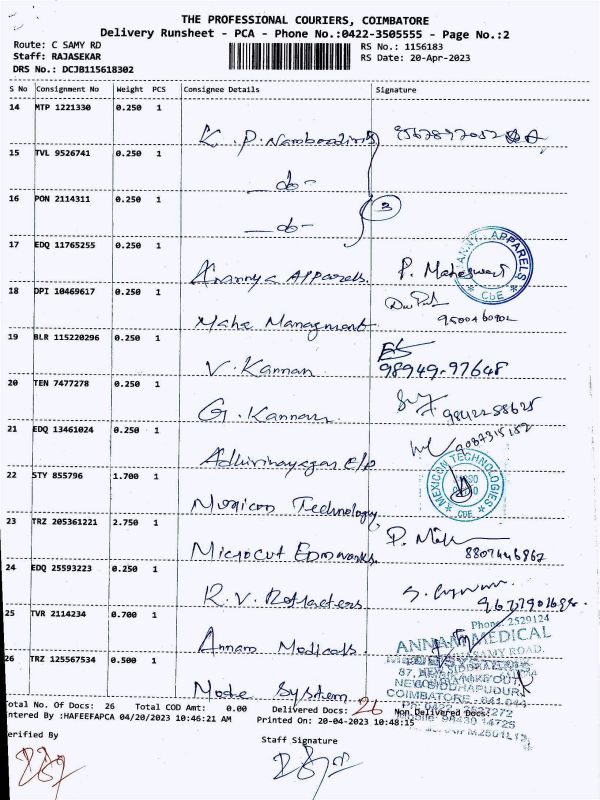 THE PROFESSIONAL COURIERS, COIMBATORE
Delivery Runsheet - PCA - Phone No.:0422-3505555 - Page No.:2
Route: C SAMY RD
RS No.: 1156183
Staff: RAJASEKAR
RS Date: 20-Apr-2023
DRS No.: DCJB115618302
S No Consignment No Weight PCS Consignee Details Signature
14 MTP 1221330 0.250 1
K. P. Namboodiris
15 TVL 9526741 0.250 1
-do-
16 PON 2114311 0.250 1
3
-do-
17 EDQ 11765255 0.250 1
Anannya Apparels. P. Maheswari
ANNY APPARELS
CbE
18 DPI 10469617 0.250 1
Mahe Managment
19 BLR 115220296 0.250 1
V. Kannan 98949-97648
20 TEN 7477278 0.250 1
G. Kannan
21 EDQ 13461024 0.250 1
Adhivinayagar E/P
22 STY 855796 1.700 1
MEXICON TECHNOLOGIES
CBE
Technology
23 TRZ 205361221 2.750 1
Microcut
24 EDQ 25593223 0.250 1
R. V. Reflacters
25 TVR 2114234 0.700 1
Phone: 2529124
Annam Medicals
ANNAM MEDICAL
26 TRZ 125567534 0.500 1
NEW SIDDHAPUDUR
COIMBATORE - 641 044
Mode System
Total No. Of Docs: 26 Total COD Amt: 0.00 Delivered Docs: 26 Non Delivered Docs:
Entered By :HAFEEFAPCA 04/20/2023 10:46:21 AM Printed On: 20-04-2023 10:48:15
Verified By
Staff Signature